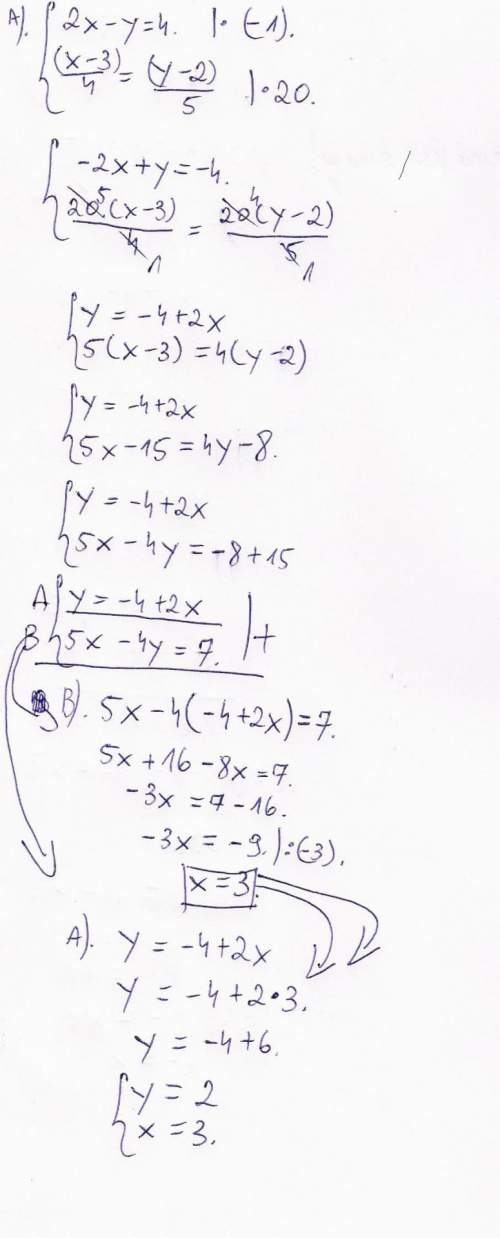 A). { 2x - y = 4. |· (-1).
(x-3)/4 = (y-2)/5 |·20.
{ -2x + y = -4.
20 5 (x-3)/4 1 = 20 4 (y-2)/5 1
{ y = -4+2x
5(x-3) = 4(y-2)
{ y = -4+2x
5x-15 = 4y-8.
{ y = -4+2x
5x-4y = -8+15
A { y = -4+2x
B 5x - 4y = 7. | +
B). 5x-4(-4+2x)=7.
5x+16-8x=7.
-3x = 7-16.
-3x = -9. |:(-3).
x=3.
A). y = -4+2x
y = -4+2·3.
y = -4+6.
{ y = 2
x = 3.